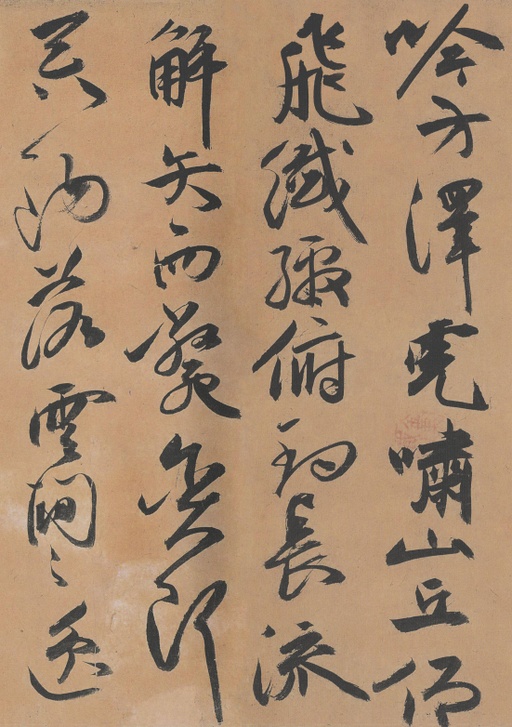 吟方澤虎嘯山丘仰
飛纖繳俯釣長流
解矢而斃貪餌
吞鉤落雲間之逸